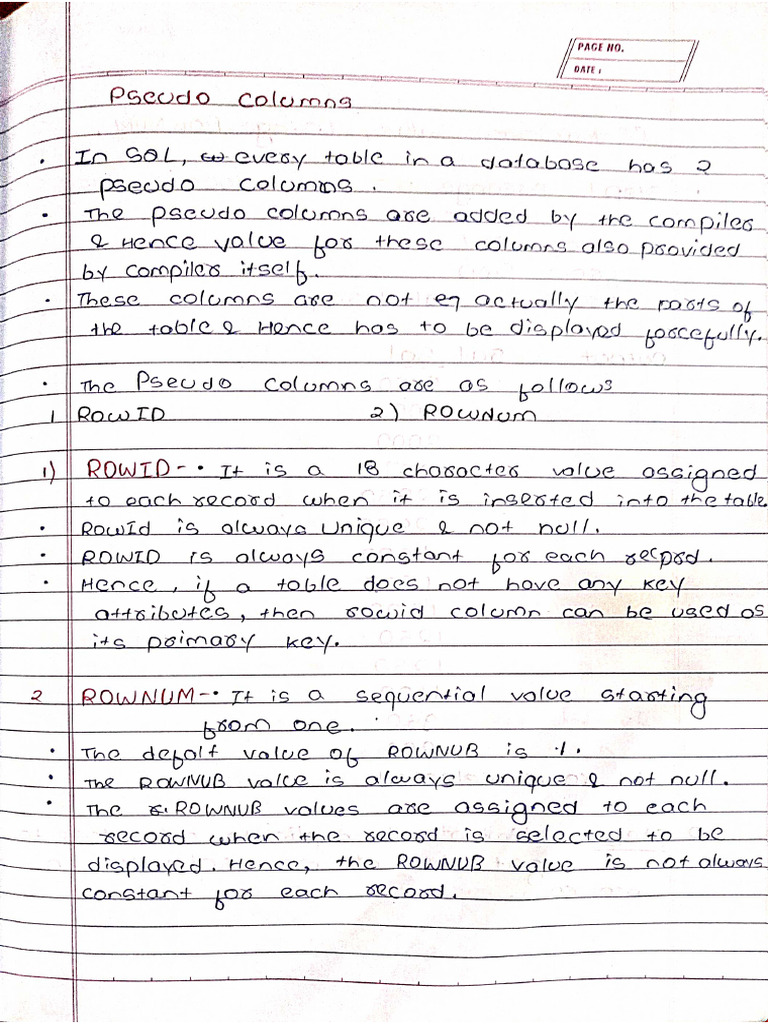 PAGE NO.
DATE :
Pseudo Columns
• In SQL, every table in a database has 2
pseudo columns.
• The pseudo columns are added by the compiler
& Hence value for these columns also provided
by compiler itself.
• These columns are not actually the parts of
the table & Hence has to be displayed forcefully.
• The Pseudo Columns are as follows
1 ROWID 2) ROWNUM
1) ROWID-• It is a 18 character value assigned
to each record when it is inserted into the table.
• RowId is always unique & not null.
• ROWID is always constant for each record.
• Hence, if a table does not have any key
attributes, then rowid column can be used as
its primary key.
2 ROWNUM-• It is a sequential value starting
from one.
• The defalt value of ROWNUB is 1.
• The ROWNUB value is always unique & not null.
• The ROWNUB values are assigned to each
record when the record is selected to be
displayed. Hence, the ROWNUB value is not always
constant for each record.